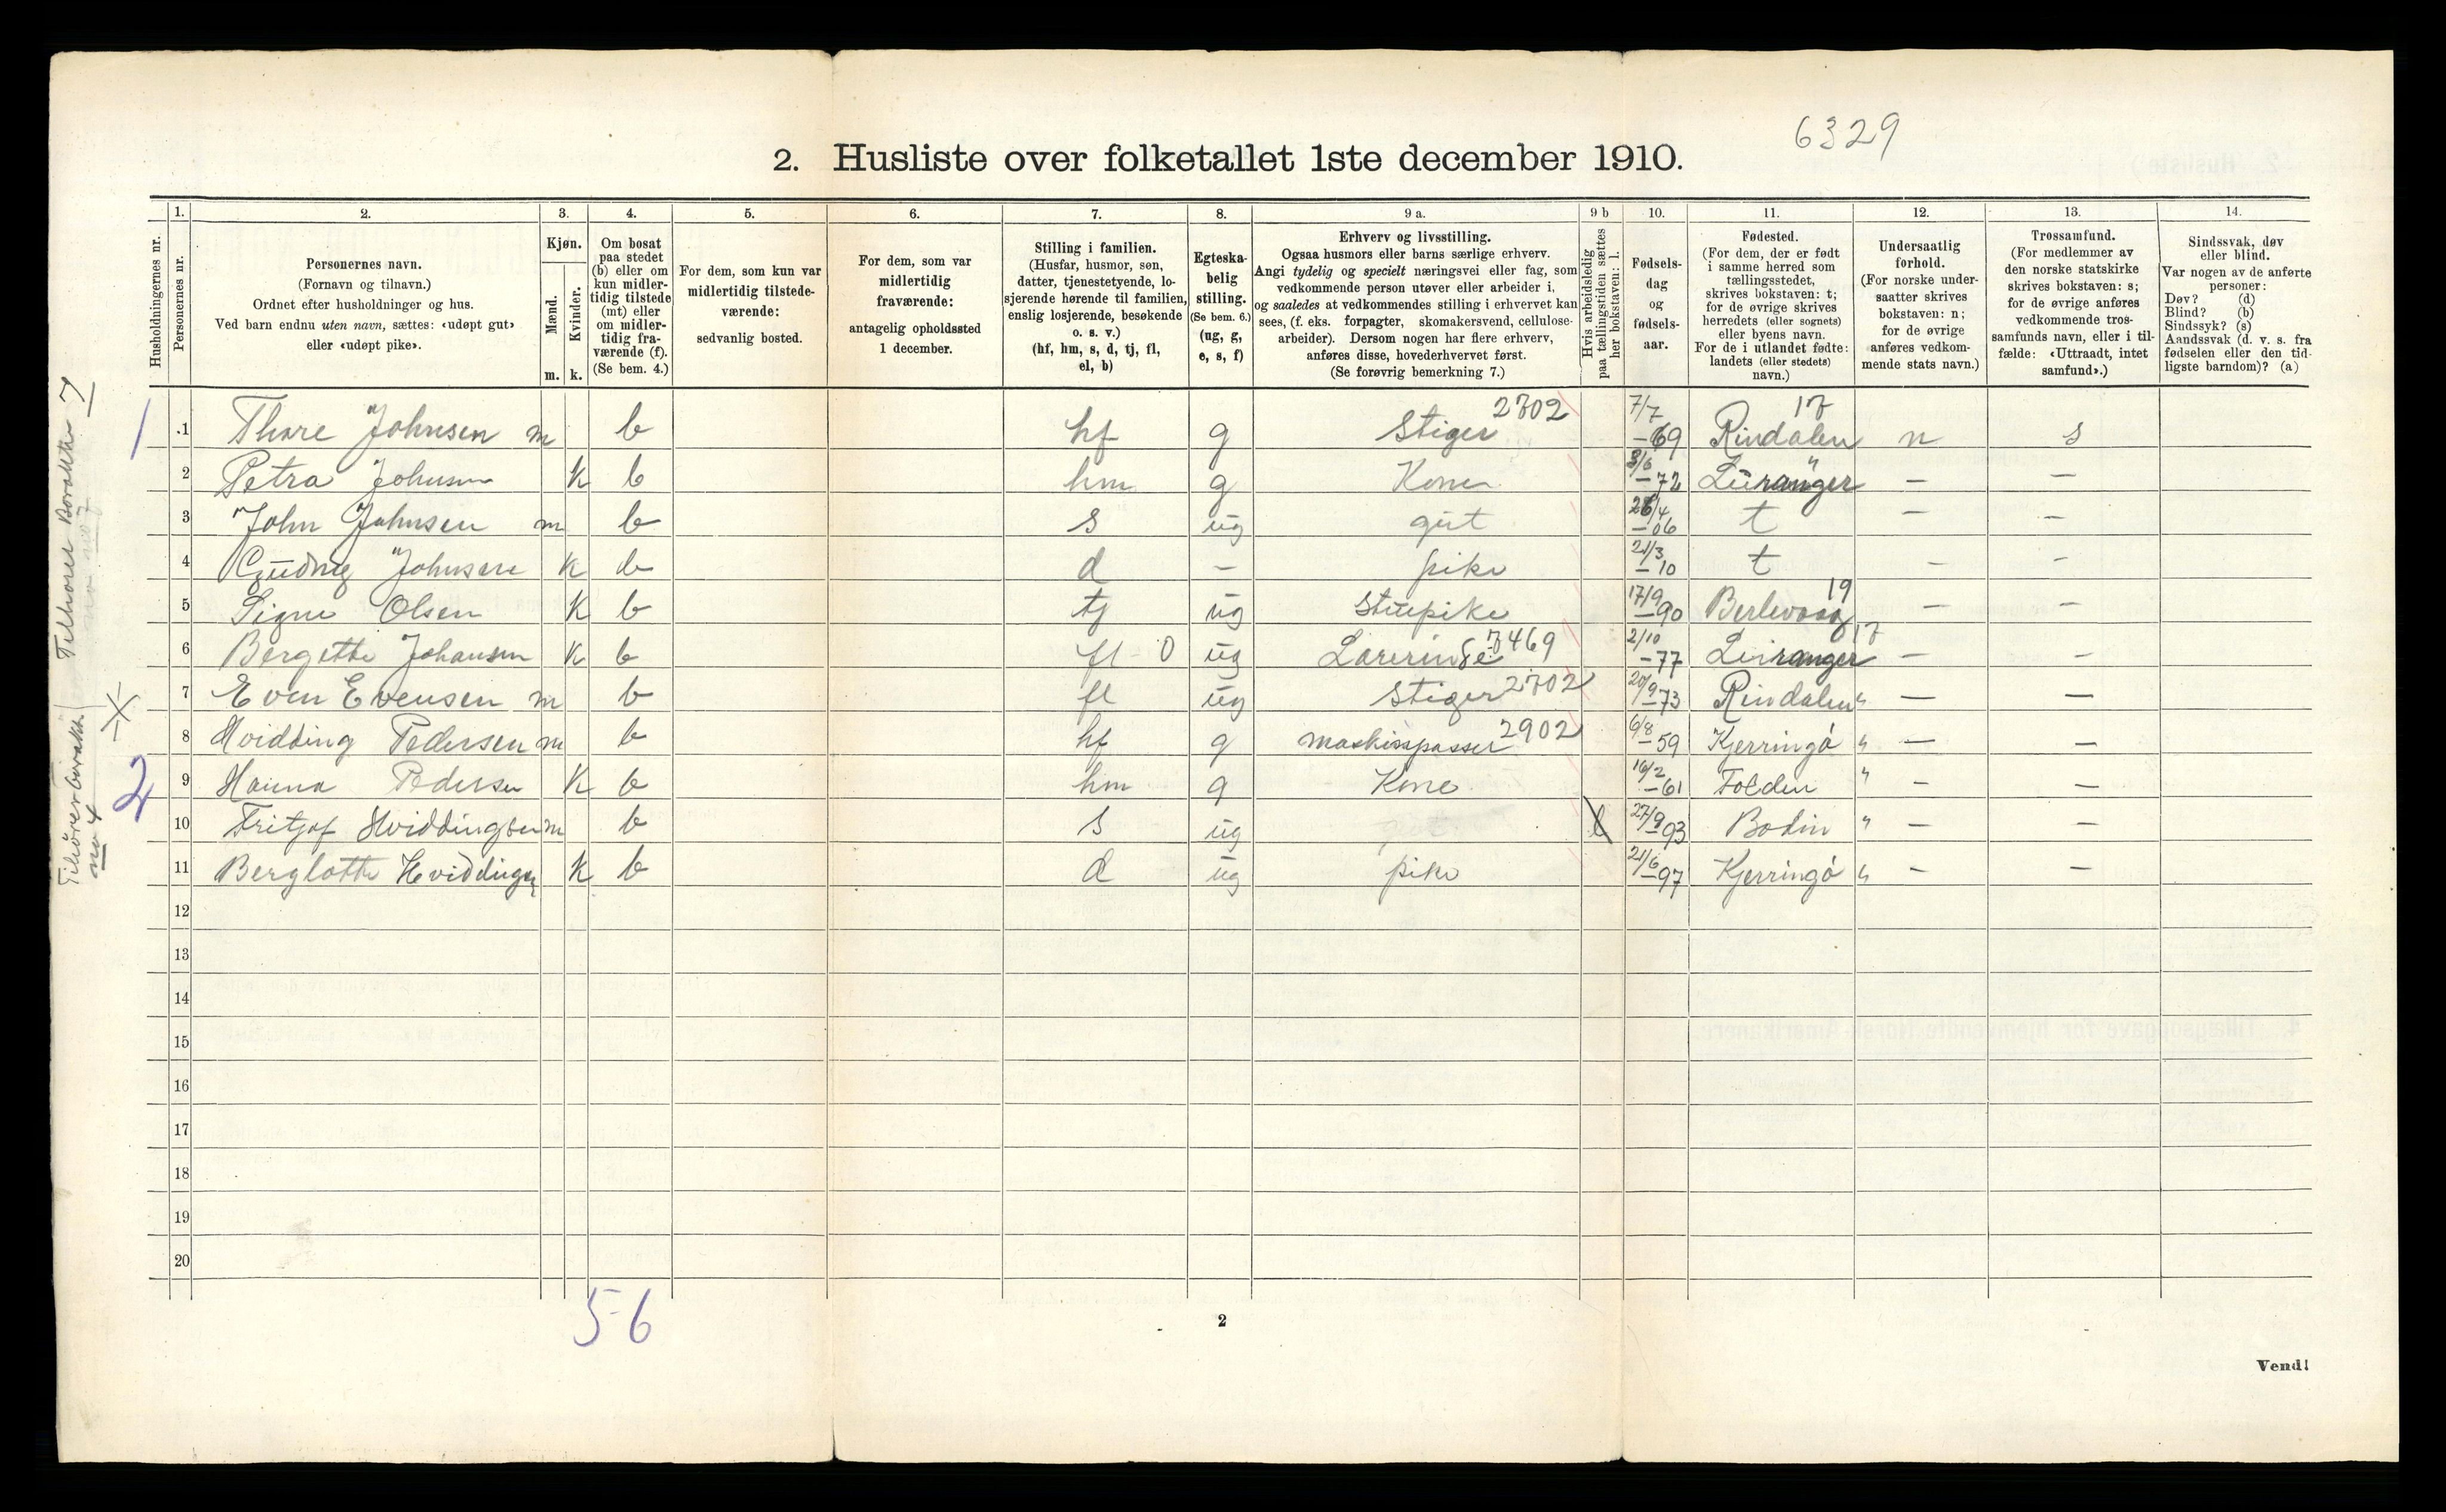 6329
2. Husliste over folketallet 1ste december 1910.
Husholdningernes nr.
1. Personernes nr.
2. Personernes navn. (Fornavn og tilnavn.) Ordnet efter husholdninger og hus. Ved barn endnu uten navn, sættes: «udøpt gut» eller «udøpt pike».
3. Kjøn. Mænd. m. Kvinder. k.
4. Om bosat paa stedet (b) eller om kun midlertidig tilstede (mt) eller om midlertidig fraværende (f). (Se bem. 4.)
5. For dem, som kun var midlertidig tilstedeværende: sedvanlig bosted.
6. For dem, som var midlertidig fraværende: antagelig opholdssted 1 december.
7. Stilling i familien. (Husfar, husmor, søn, datter, tjenestetyende, losjerende hørende til familien, enslig losjerende, besøkende o. s. v.) (hf, hm, s, d, tj, fl, el, b)
8. Egteskabelig stilling. (Se bem. 6.) (ug, g, e, s, f)
9 a. Erhverv og livsstilling. Ogsaa husmors eller barns særlige erhverv. Angi tydelig og specielt næringsvei eller fag, som vedkommende person utøver eller arbeider i, og saaledes at vedkommendes stilling i erhvervet kan sees, (f. eks. forpagter, skomakersvend, cellulosearbeider). Dersom nogen har flere erhverv, anføres disse, hovederhvervet først. (Se forøvrig bemerkning 7.)
9 b Hvis arbeidsledig paa tællingstiden sættes her bokstaven: l.
10. Fødselsdag og fødselsaar.
11. Fødested. (For dem, der er født i samme herred som tællingsstedet, skrives bokstaven: t; for de øvrige skrives herredets (eller sognets) eller byens navn. For de i utlandet fødte: landets (eller stedets) navn.)
12. Undersaatlig forhold. (For norske undersaatter skrives bokstaven: n; for de øvrige anføres vedkommende stats navn.)
13. Trossamfund. (For medlemmer av den norske statskirke skrives bokstaven: s; for de øvrige anføres vedkommende trossamfunds navn, eller i tilfælde: «Uttraadt, intet samfund».)
14. Sindssvak, døv eller blind. Var nogen av de anførte personer: Døv? (d) Blind? (b) Sindssyk? (s) Aandssvak (d. v. s. fra fødselen eller den tidligste barndom)? (a)
1 1 Thore Johnsen m b hf g Stiger 2702 7/7 -69 Rindalen 17 n s
2 Petra Johnsen k b hm g Kone 3/6 -72 Leiranger " — —
3 John Johnsen m b s ug gut 26/4 -06 t — —
4 Gudny Johnsen k b d — pike 21/3 -10 t — —
5 Signe Olsen k b tj ug Stuepike 17/9 -90 Berlevaag 19 — —
6 Bergette Johansen k b fl 0 ug Lærerinde 7469 2/10 -77 Leiranger 17 — —
7 Even Evensen m b fl ug Stiger 2702 20/9 -73 Rindalen " — —
8 Hvidding Pedersen m b hf g maskinpasser 2902 6/8 -59 Kjerringö " — —
2 9 Hanna Pedersen k b hm g Kone 16/2 -61 Folden " — —
10 Fritjof Hviddingsen m b s ug l 27/9 -93 Bodin " — —
11 Berglotte Hviddingsen k b d ug pike 21/6 -97 Kjerringö " — —
12
13
14
15
16
17
18
19
20
5-6
2
Vend!
Tilhører Barakke 7
Tilhører barakke no 4